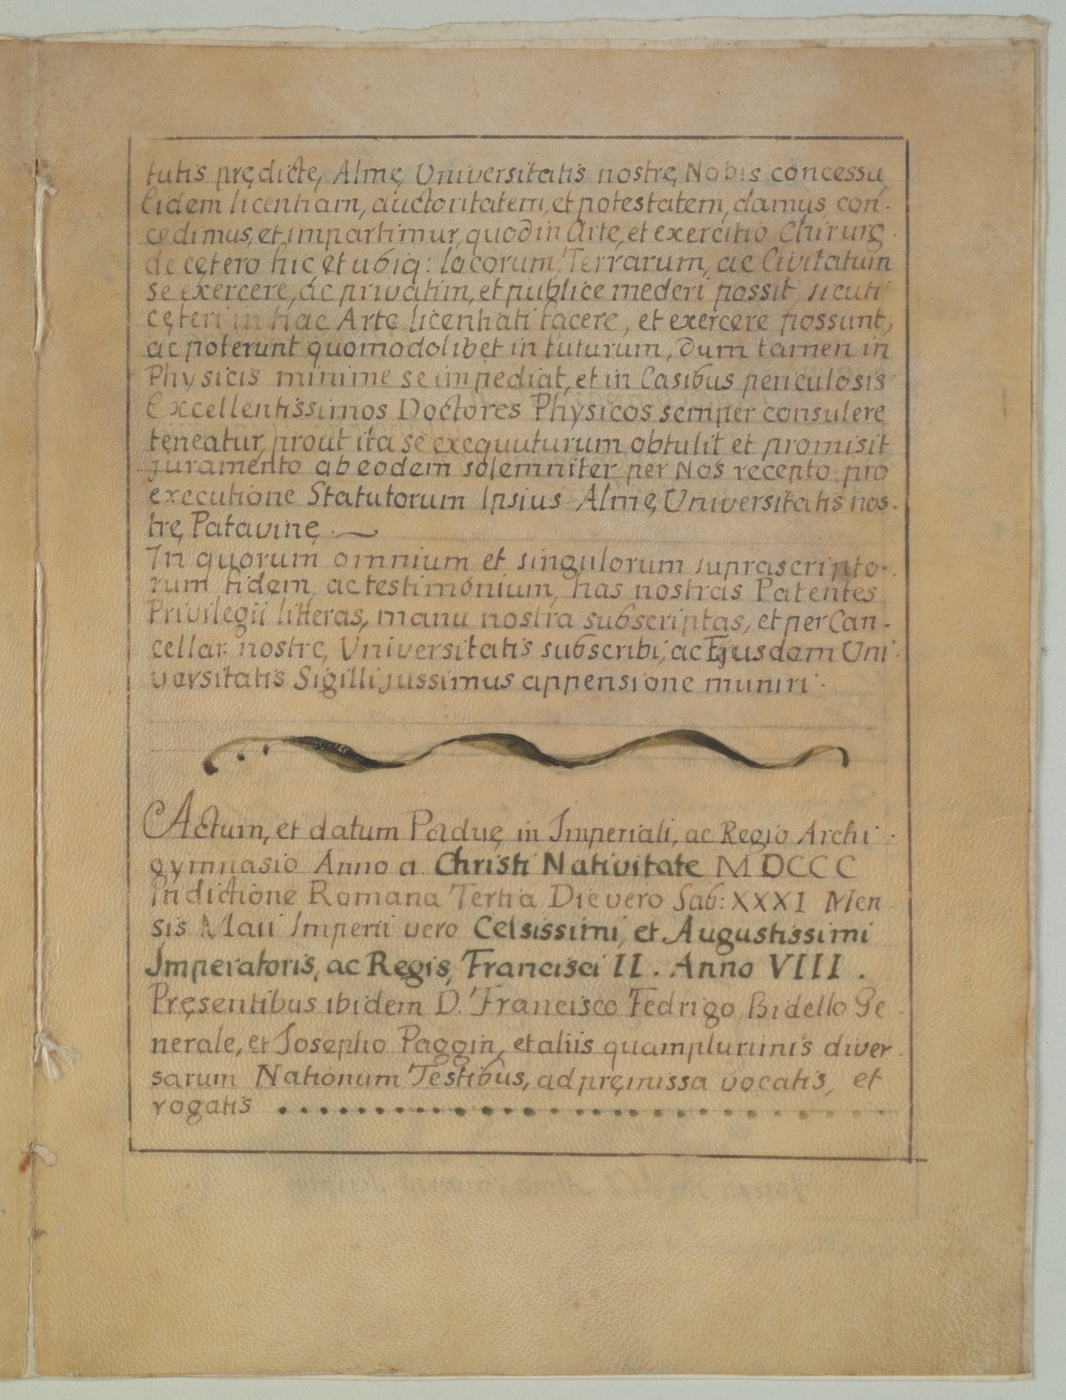 tutis prędictę, Almę Universitatis nostrę Nobis concessę
Eidem licentiam, auctoritatem, et potestatem, damus, con-
cedimus, et impartimur, quod in Arte, et exercitio Chirurg.
de cętero hic et ubiq: locorum, Terrarum, ac Civitatum
se exercere, ac privatim, et publice mederi possit, sicuti
cęteri in hac Arte licentiati facere, et exercere possunt,
ac poterunt quomodolibet in futurum, dum tamen in
Physicis minime se impediat, et in Casibus periculosis
Excellentissimos Doctores Physicos semper consulere
teneatur, prout ita se exequuturum obtulit et promisit
juramento ab eodem solemniter per Nos recepto pro
executione Statutorum Ipsius Almę Universitatis nos-
trę Patavinę.
In quorum omnium et singulorum suprascripto-
rum fidem, ac testimónium, has nostras Patentes
Privilegii litteras, manu nostra subscriptas, et per Can-
cellar: nostrę Universitatis subscribi, ac Ejusdem Uni-
versitatis Sigilli jussimus appensione muniri.
Actum, et datum Paduę in Imperiali, ac Regio Archi-
gymnasio Anno a Christi Nativitate MDCCC
Indictione Romana Tertia Die vero Sab: XXXI Men
sis Maii Imperii vero Celsissimi, et Augustissimi
Imperatoris, ac Regis, Francisci II. Anno VIII.
Pręsentibus ibidem D. Francisco Fedrigo Bidello Ge-
nerale, et Josepho Paggin, et aliis quamplurimis diver-
sarum Nationum Testibus, ad pręmissa vocatis, et
rogatis